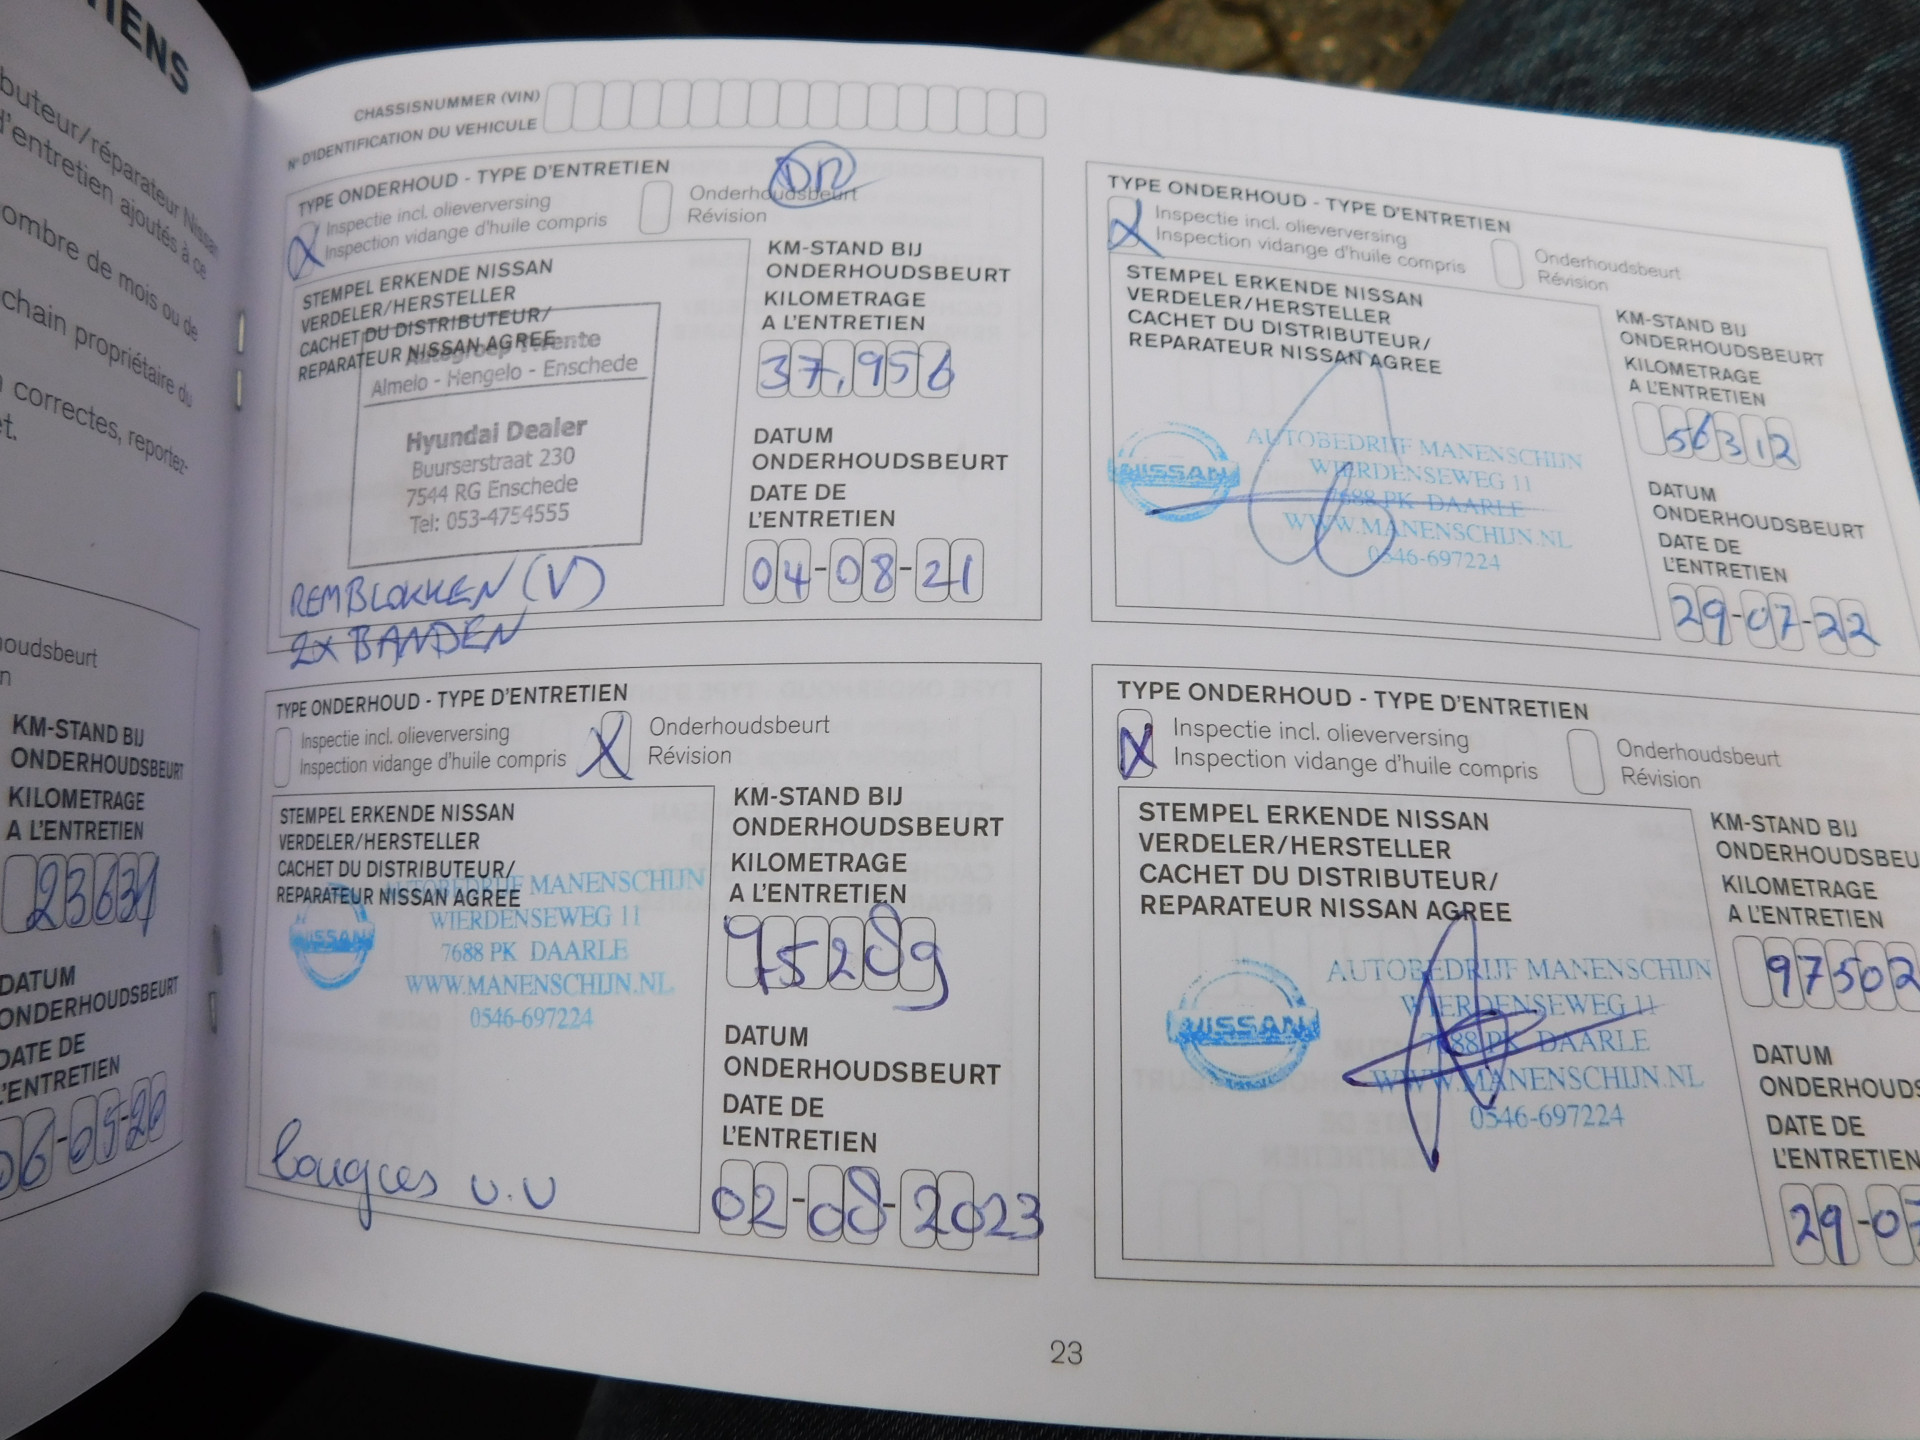 IENS
buteur/réparateur Nissan
d'entretien ajoutés à ce
ombre de mois ou de
chain propriétaire du
correctes, reportez-
et.
oudsbeurt
n
KM-STAND BIJ
ONDERHOUDSBEURT
KILOMETRAGE
A L'ENTRETIEN
23631
DATUM
ONDERHOUDSBEURT
DATE DE
L'ENTRETIEN
06-05-20
CHASSISNUMMER (VIN)
N° D'IDENTIFICATION DU VEHICULE
TYPE ONDERHOUD - TYPE D'ENTRETIEN
X Inspectie incl. olieverversing
Inspection vidange d'huile compris
Onderhoudsbeurt
Révision
STEMPEL ERKENDE NISSAN
VERDELER/HERSTELLER
CACHET DU DISTRIBUTEUR/
REPARATEUR NISSAN AGREE
Autogroep Twente
Almelo - Hengelo - Enschede
Hyundai Dealer
Buurserstraat 230
7544 RG Enschede
Tel: 053-4754555
REMBLOKKEN (V)
2x BANDEN
KM-STAND BIJ
ONDERHOUDSBEURT
KILOMETRAGE
A L'ENTRETIEN
37,956
DATUM
ONDERHOUDSBEURT
DATE DE
L'ENTRETIEN
04-08-21
TYPE ONDERHOUD - TYPE D'ENTRETIEN
X Inspectie incl. olieverversing
Inspection vidange d'huile compris
Onderhoudsbeurt
Révision
STEMPEL ERKENDE NISSAN
VERDELER/HERSTELLER
CACHET DU DISTRIBUTEUR/
REPARATEUR NISSAN AGREE
NISSAN
AUTOBEDRIJF MANENSCHIJN
WIERDENSEWEG 11
7688 PK DAARLE
WWW.MANENSCHIJN.NL
0546-697224
KM-STAND BIJ
ONDERHOUDSBEURT
KILOMETRAGE
A L'ENTRETIEN
56312
DATUM
ONDERHOUDSBEURT
DATE DE
L'ENTRETIEN
29-07-22
TYPE ONDERHOUD - TYPE D'ENTRETIEN
Inspectie incl. olieverversing
Inspection vidange d'huile compris
X Onderhoudsbeurt
Révision
STEMPEL ERKENDE NISSAN
VERDELER/HERSTELLER
CACHET DU DISTRIBUTEUR/
REPARATEUR NISSAN AGREE
NISSAN
AUTOBEDRIJF MANENSCHIJN
WIERDENSEWEG 11
7688 PK DAARLE
WWW.MANENSCHIJN.NL
0546-697224
KM-STAND BIJ
ONDERHOUDSBEURT
KILOMETRAGE
A L'ENTRETIEN
75289
DATUM
ONDERHOUDSBEURT
DATE DE
L'ENTRETIEN
02-08-2023
TYPE ONDERHOUD - TYPE D'ENTRETIEN
X Inspectie incl. olieverversing
Inspection vidange d'huile compris
Onderhoudsbeurt
Révision
STEMPEL ERKENDE NISSAN
VERDELER/HERSTELLER
CACHET DU DISTRIBUTEUR/
REPARATEUR NISSAN AGREE
NISSAN
AUTOBEDRIJF MANENSCHIJN
WIERDENSEWEG 11
7688 PK DAARLE
WWW.MANENSCHIJN.NL
0546-697224
KM-STAND BIJ
ONDERHOUDSBEU
KILOMETRAGE
A L'ENTRETIEN
97502
DATUM
ONDERHOUDS
DATE DE
L'ENTRETIEN
29-07
23